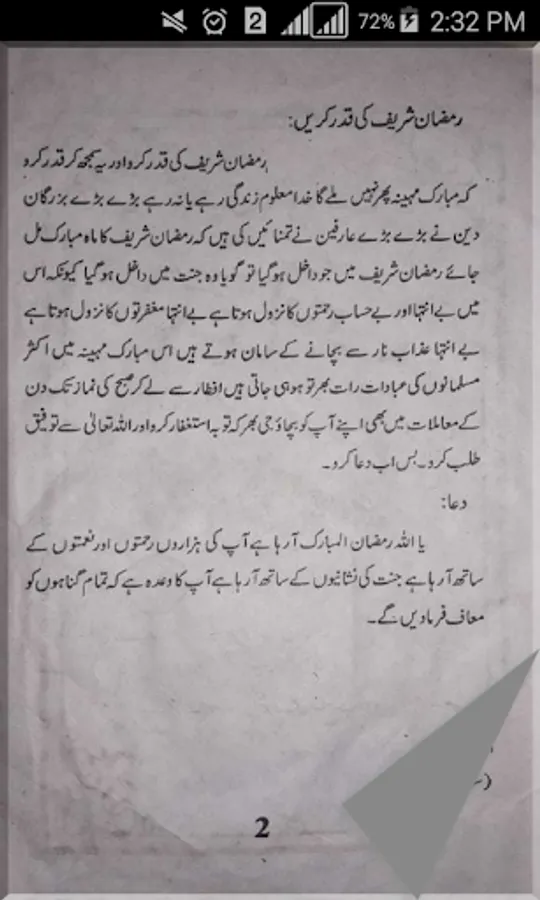 2 72% 2:32 PM
رمضان شریف کی قدر کریں:
رمضان شریف کی قدر کرو اور یہ سمجھ کر قدر کرو
کہ مبارک مہینہ پھر نہیں ملے گا خدا معلوم زندگی رہے یا نہ رہے بڑے بڑے بزرگان
دین نے بڑے بڑے عارفین نے تمنائیں کی ہیں کہ رمضان شریف کا ماہ مبارک مل
جائے رمضان شریف میں جو داخل ہوگیا تو گویا وہ جنت میں داخل ہوگیا کیونکہ اس
میں بے انتہا اور بے حساب رحمتوں کا نزول ہوتا ہے بے انتہا مغفرتوں کا نزول ہوتا ہے
بے انتہا عذاب نار سے بچانے کے سامان ہوتے ہیں اس مبارک مہینہ میں اکثر
مسلمانوں کی عبادات رات بھر تو ہو ہی جاتی ہیں افطار سے لے کر صبح کی نماز تک دن
کے معاملات میں بھی اپنے آپ کو بچاؤ جی بھر کہ توبہ استغفار کرو اور اللہ تعالیٰ سے توفیق
طلب کرو۔ بس اب دعا کرو۔
دعا:
یا اللہ رمضان المبارک آرہا ہے آپ کی ہزاروں رحمتوں اور نعمتوں کے
ساتھ آرہا ہے جنت کی نشانیوں کے ساتھ آرہا ہے آپ کا وعدہ ہے کہ تمام گناہوں کو
معاف فرمادیں گے۔
2